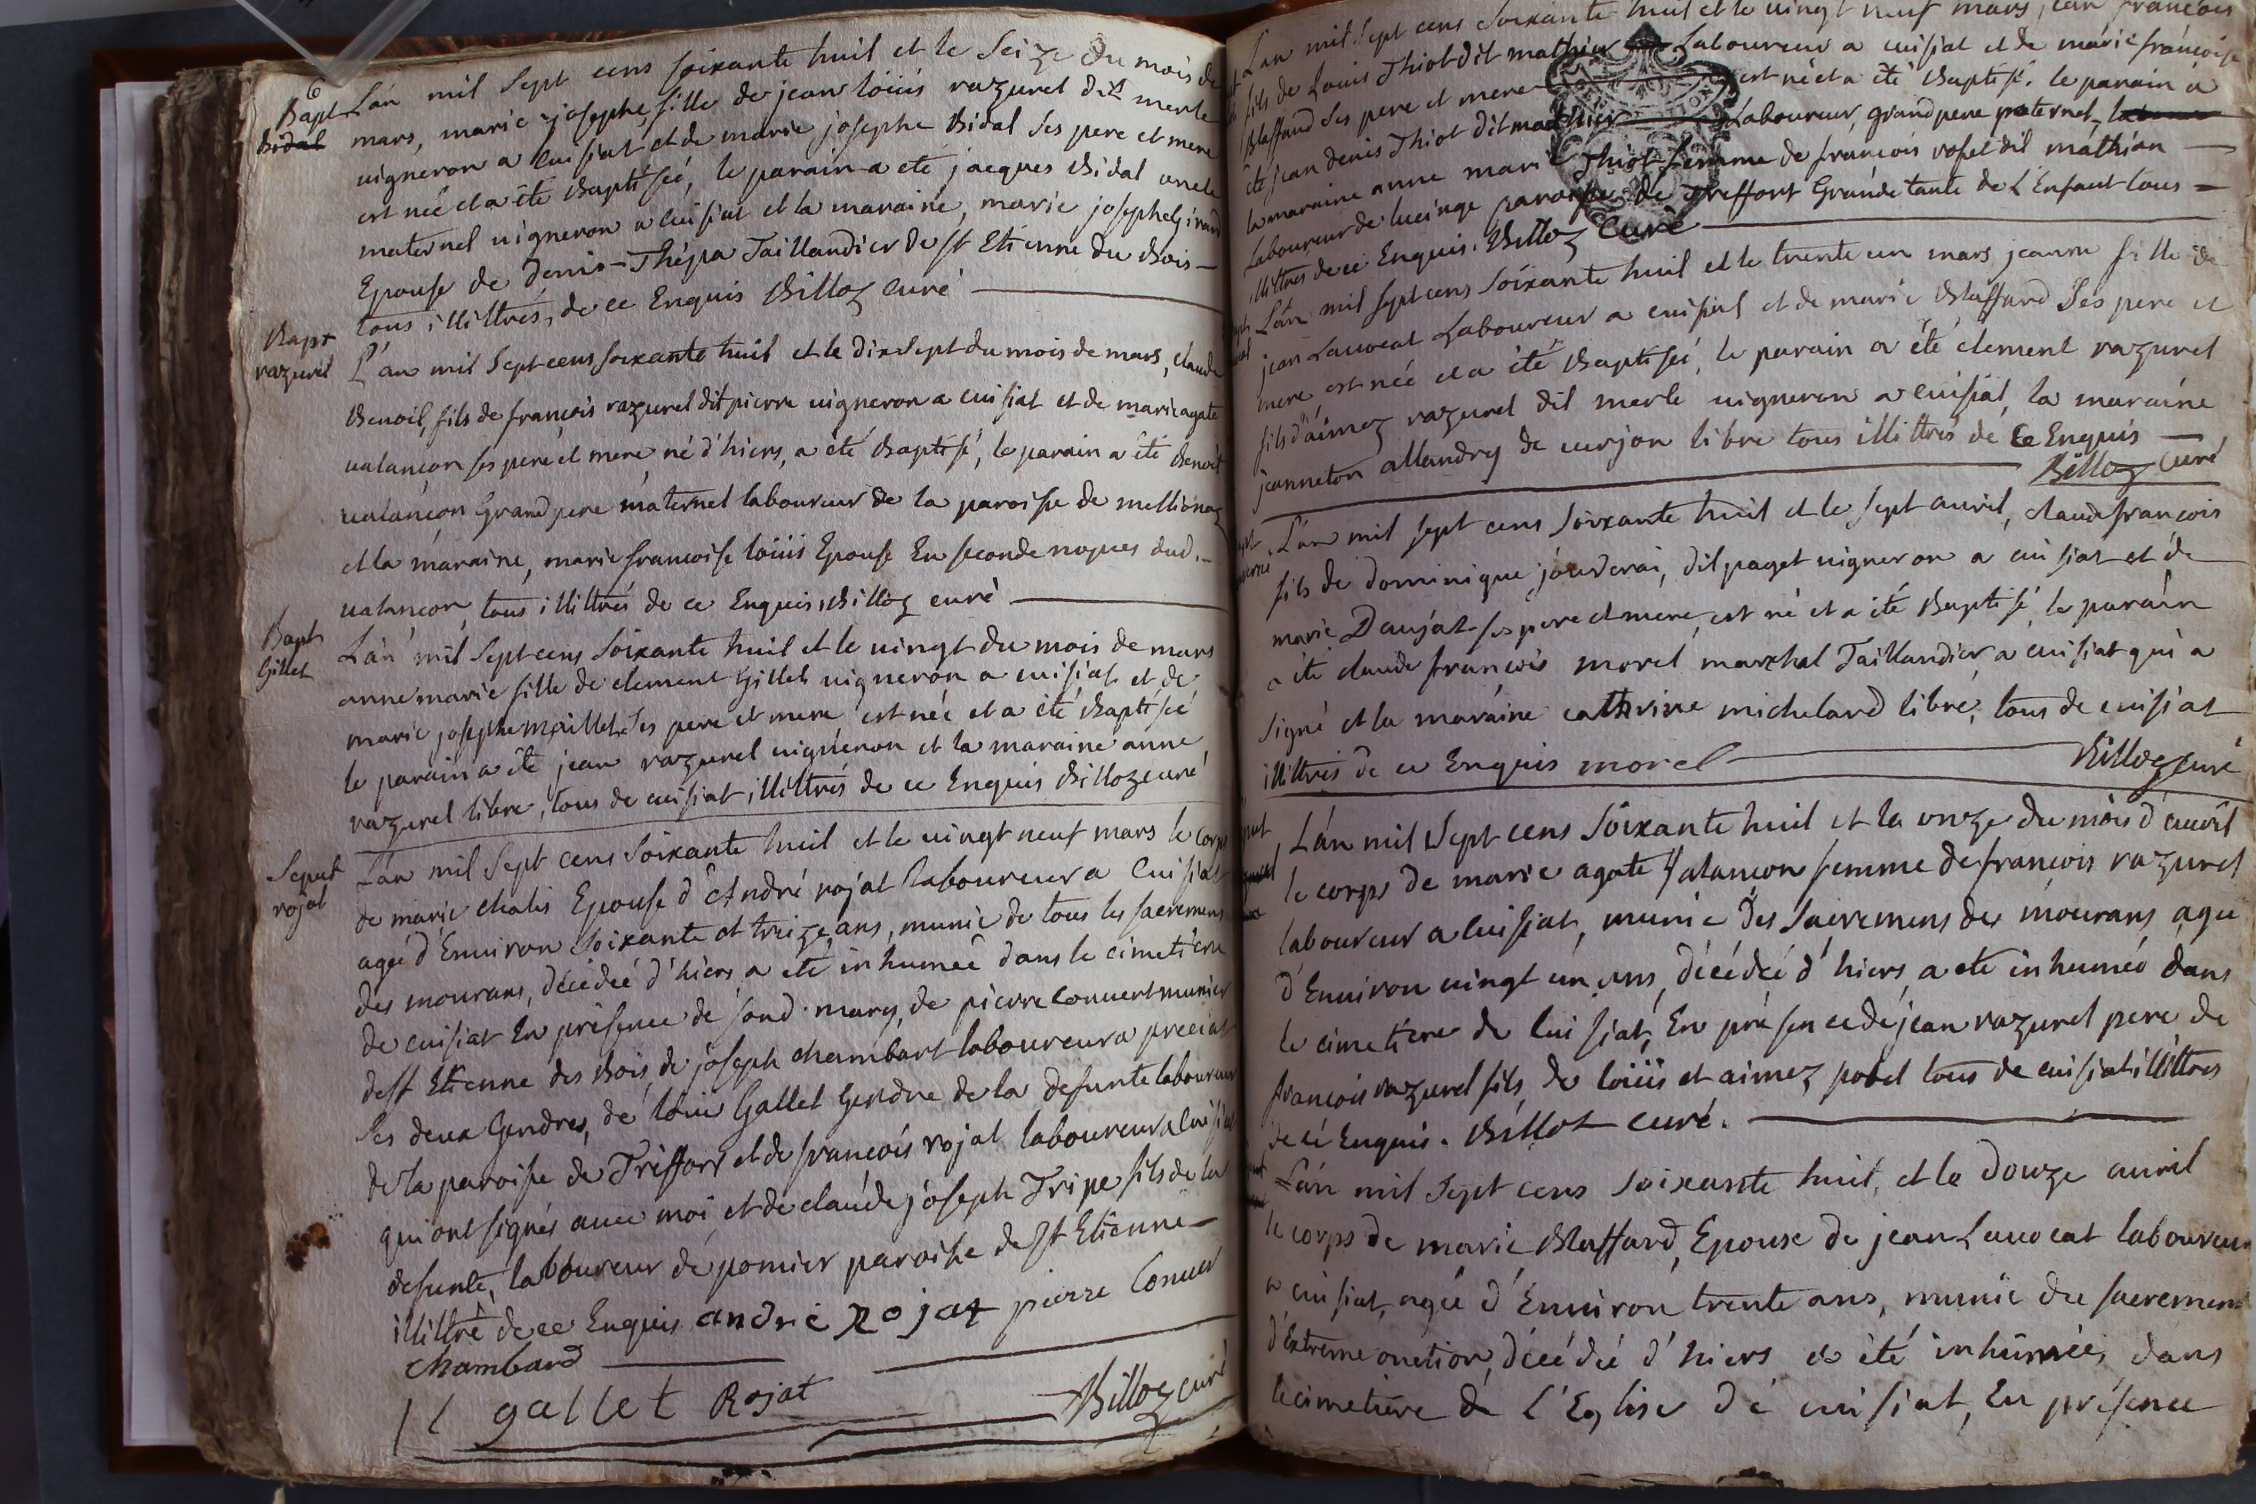 6
Bapt
Bidal
L'an mil sept cens soixante huit et le seize du mois de
mars, marie josephe, fille de jean loüis razurel dit merle
vigneron a cuisiat et de marie josephe Bidal ses pere et mere
est née et a été Baptisée, le parain a été jacques Bidal oncle
maternel vigneron a cuisiat et la maraine, marie josephe Girard
Epouse de denis Thépa Taillandier de st Etienne du Bois
tous illittrés, de ce Enquis Billoz curé
Bapt
razurel
L'an mil sept cens soixante huit et le dix sept du mois de mars, claude
Benoit, fils de françois razurel dit pierre vigneron a cuisiat et de marie agate
valançon ses pere et mere né d'hiers, a été Baptisé, le parain a été Benoit
valançon Grand pere maternel laboureur de la paroisse de mellionaz
et la maraine, marie françoise loüis Epouse En seconde nopces dud.
valançon, tous illittrés de ce Enquis, Billoz curé
Bapt
Gillet
L'an mil sept cens soixante huit et le vingt du mois de mars
anne marie fille de clement Gillet vigneron a cuisiat et de
marie josephe maillet ses pere et mere est née et a été Baptisée
le parain a été jean razurel vigneron et la maraine anne
razurel libre, tous de cuisiat, illittrés de ce Enquis Billoz curé
Sepult
rojat
L'an mil sept cens soixante huit et le vingt neuf mars le corps
de marie chalis Epouse d'André rojat laboureur a Cuisiat
agée d'Environ soixante et treize ans, munie de tous les sacremens
des mourans, décédée d'hiers a été inhumée dans le cimetière
de cuisiat En présence de sond. mary, de pierre Convert munier
de st Etienne des Bois, de joseph chambart laboureur a preciat
ses deux Gendres, de loüis Gallet Gendre de la defunte laboureur
de la paroisse de Treffort et de françois rojat laboureur a Cuisiat
qui ont signés avec moi et de claude joseph Tripe fils de la
defunte, laboureur de pomier paroisse de st Etienne
illittré de ce Enquis andrie Rojat pierre Conver
Chambard
gallet Rojat
Billoz curé
L'an mil sept cens soixante huit et le vingt neuf mars, jan françois
fils de Louis Thiot dit mathieu Laboureur a cuisiat et de marie françoise
Blaffard ses pere et mere est né et a été Baptisé, le parain a
été jean denis Thiot dit mathieu Laboureur, grand pere paternel,
la maraine anne marie Thiot femme de françois rosel dit mathian
Laboureur de lucinge paroisse de Treffort Grande tante de L'Enfant tous
illittrés de ce Enquis. Billoz Curé
L'an mil sept cens soixante huit et le trente un mars jeanne fille de
jean Lauocat Laboureur a cuisiat et de marie Blaffard ses pere et
mere est née et a été Baptisée, le parain a été clement razurel
fils d'aimez razurel dit merle vigneron a cuisiat, la maraine
janneton allandry de curjon libre tous illittrés de ce Enquis
Billoz curé
L'an mil sept cens soixante huit et le sept avril, claude françois
fils de dominique jouderai, dit paget vigneron a cuisiat et de
marie Daujat ses pere et mere, est né et a été Baptisé, le parain
a été claude françois morel marchal Taillandier a cuisiat qui a
signé et la maraine catherine michelard libre, tous de cuisiat
illittrés de ce Enquis morel Billoz curé
L'an mil sept cens soixante huit et la onze du mois d'avril
le corps de marie agate Valançon femme de françois razurel
laboureur a cuisiat, munie des sacremens des mourans, agée
d'Environ vingt un ans, décédée d'hiers, a eté inhumée dans
le cimetiere de Cuisiat, En présence de jean razurel pere de
françois razurel fils de loüis et aimez pobel tous de cuisiat illittrés
de ce Enquis. Billot curé.
L'an mil sept cens soixante huit, et le douze avril
le corps de marie Blaffard, Epouse de jean Lauocat laboureur
a cuisiat, agée d'Environ trente ans, munie du sacrement
d'Extreme onction, décédée d'hiers a été inhumée, dans
le cimetiere de L'Eglise de cuisiat, En présence